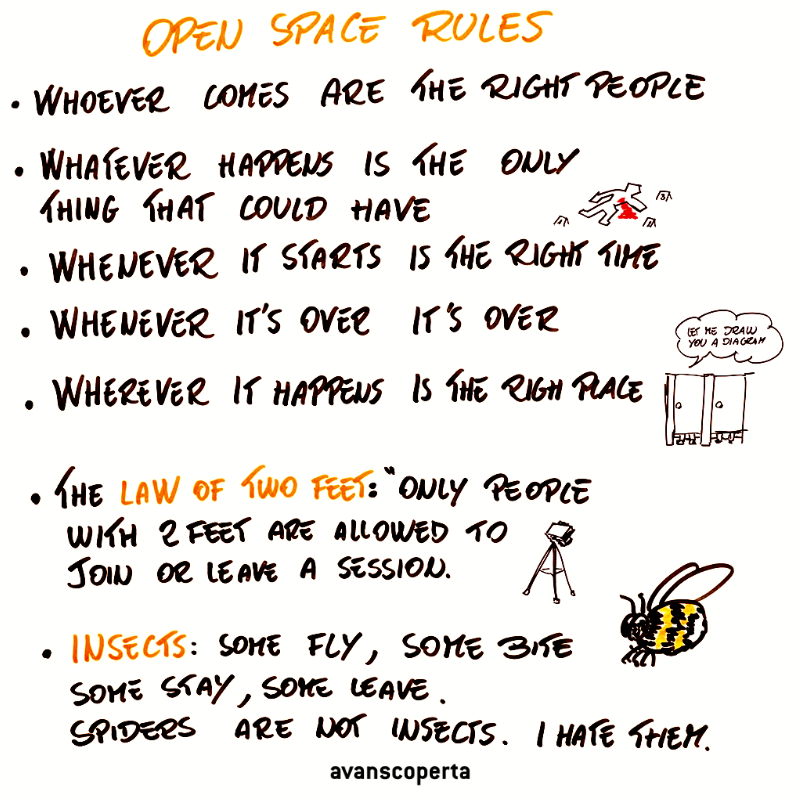 OPEN SPACE RULES
• WHOEVER COMES ARE THE RIGHT PEOPLE
• WHATEVER HAPPENS IS THE ONLY
THING THAT COULD HAVE
• WHENEVER IT STARTS IS THE RIGHT TIME
• WHENEVER IT'S OVER IT'S OVER
LET ME DRAW
YOU A DIAGRAM
• WHEREVER IT HAPPENS IS THE RIGH PLACE
• THE LAW OF TWO FEET: "ONLY PEOPLE
WITH 2 FEET ARE ALLOWED TO
JOIN OR LEAVE A SESSION.
• INSECTS: SOME FLY, SOME BITE
SOME STAY, SOME LEAVE.
SPIDERS ARE NOT INSECTS. I HATE THEM.
avanscoperta